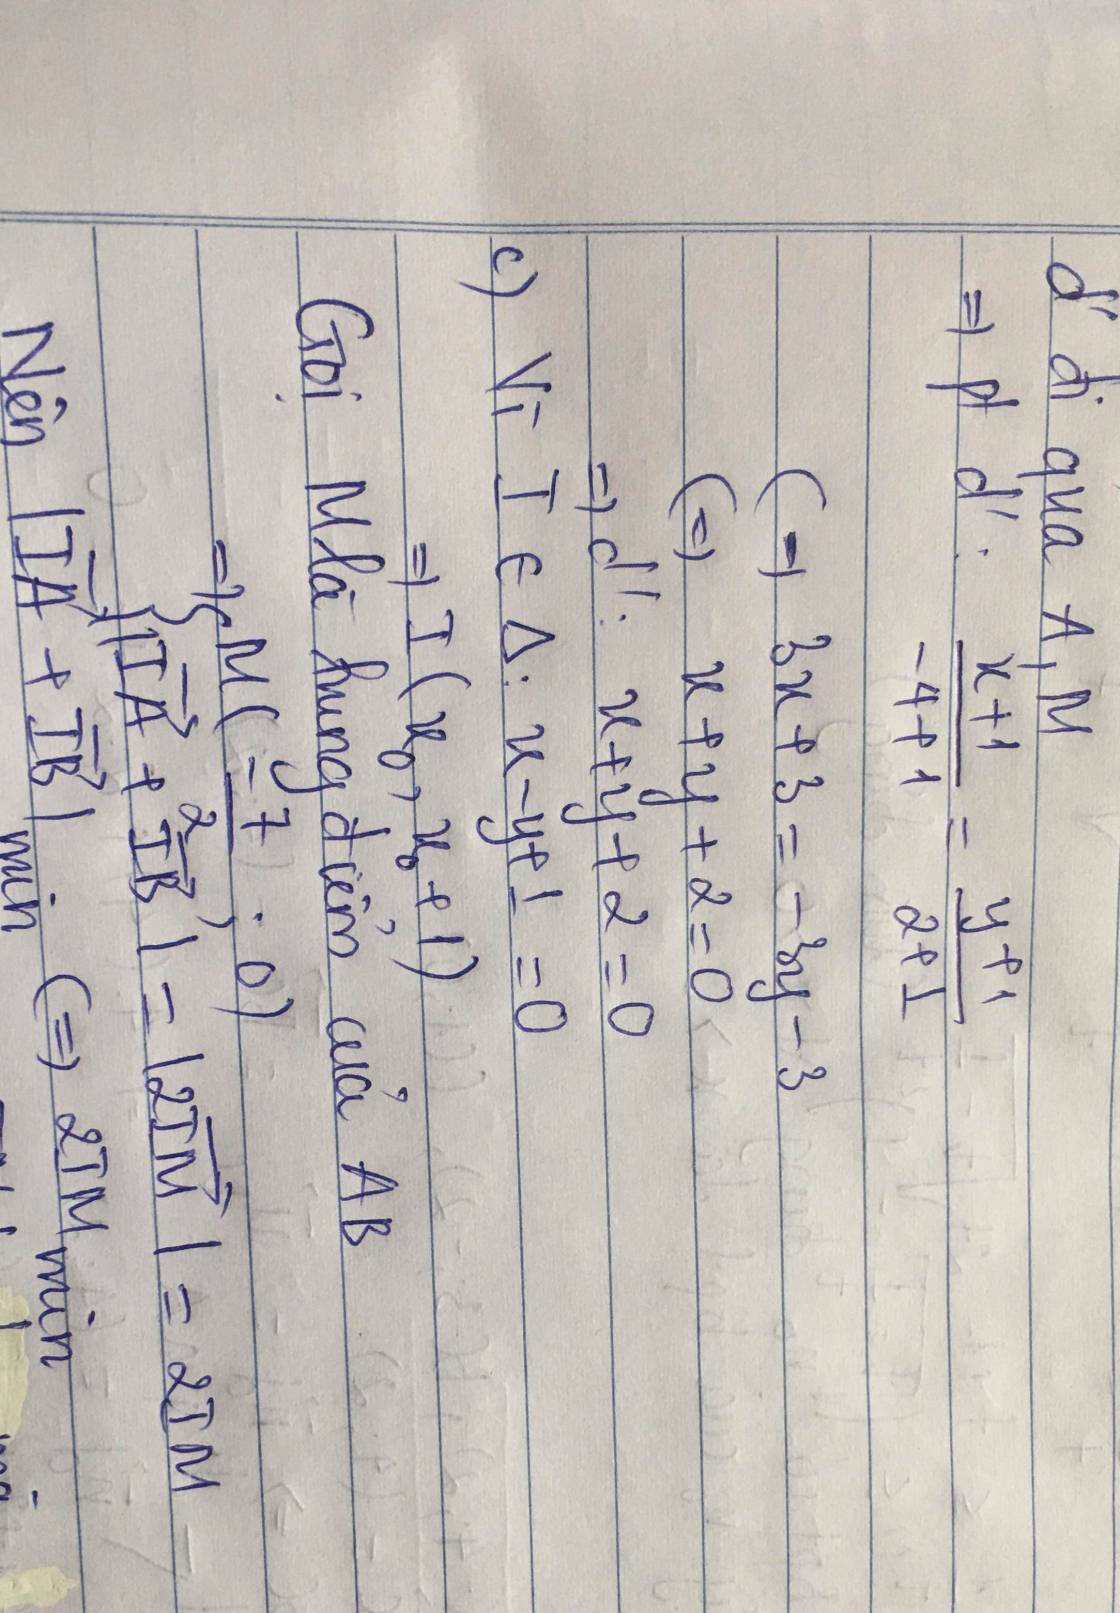 d' đi qua A, M
=> pt d': x+1/-4+1 = y+1/2+1
(=> 3x+3 = -3y-3
(=> x+y+2=0
=> d': x+y+2=0
c) Vì I ∈ Δ: x-y+1=0
=> I (x₀, x₀+1)
Gọi M là trung điểm của AB
=> { M(-7/2; 0)
|IA + IB| = |2IM| = 2IM
Nên |IA + IB| min (=> 2IM min